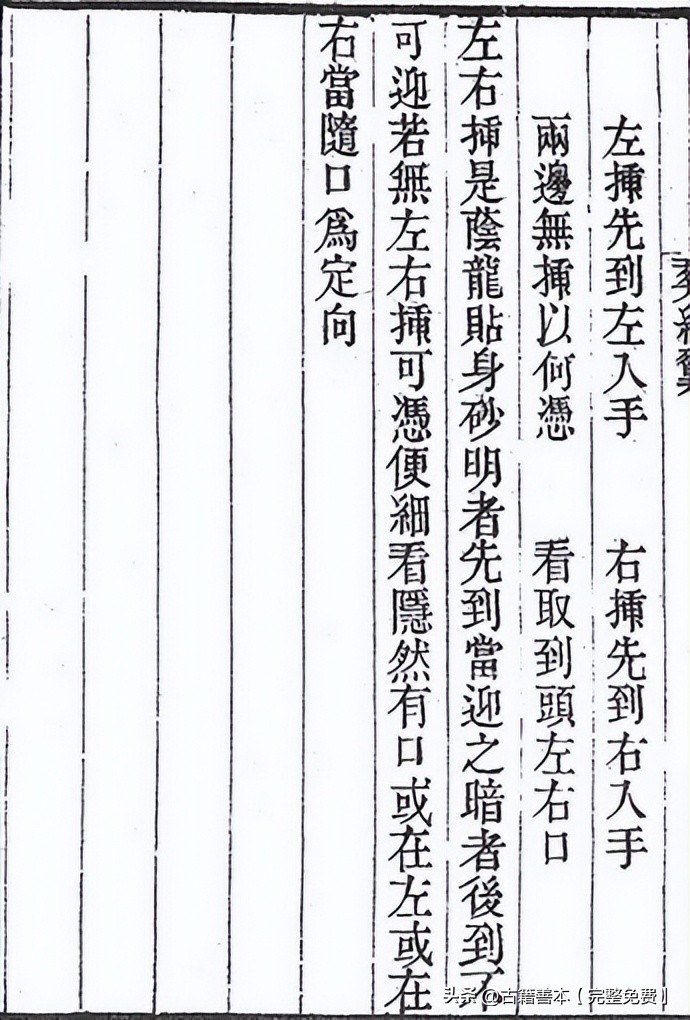 左挿先到左入手　右挿先到右入手
兩邊無挿以何憑　看取到頭左右口
左右挿是蔭龍貼身砂明者先到當迎之暗者後到不
可迎若無左右挿可憑便細看隱然有口或在左或在
右當隨口爲定向
头条 @古籍善本【完整免费】